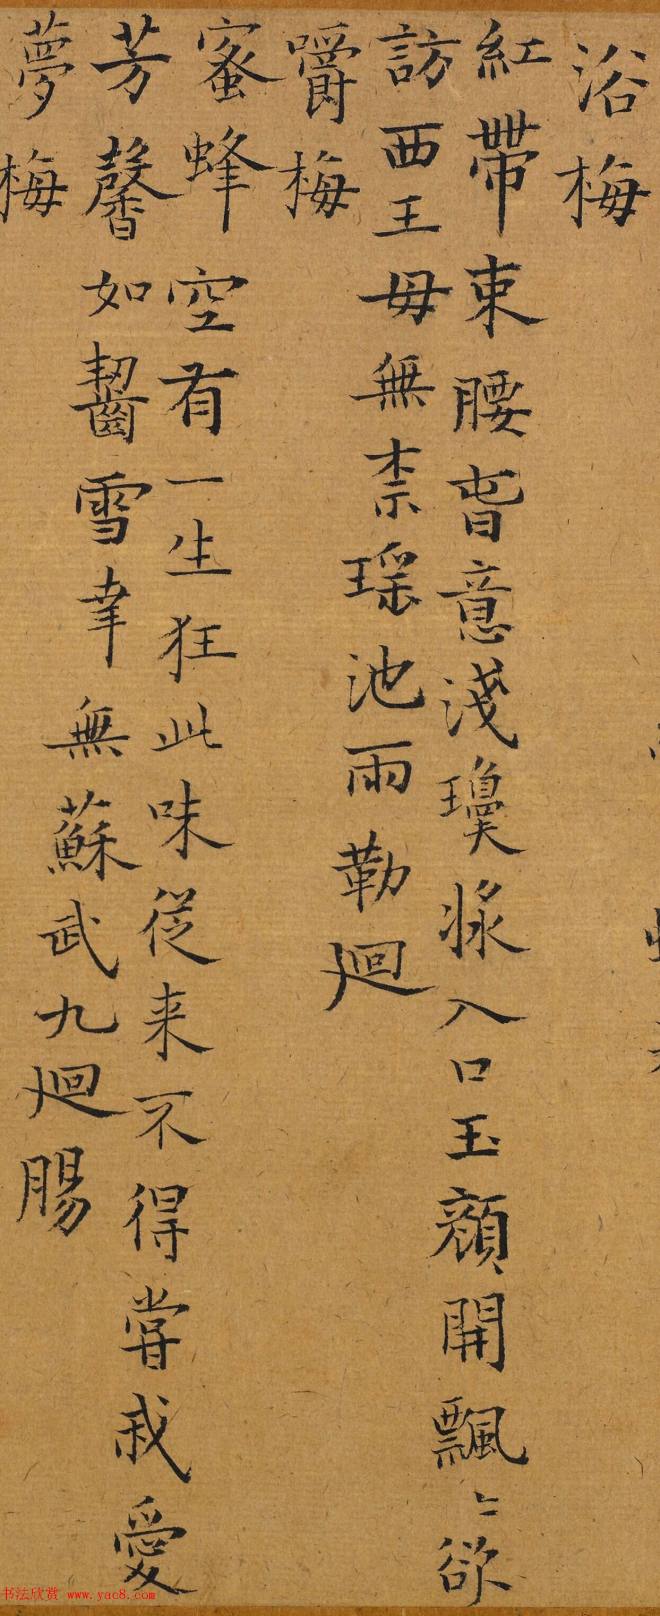 浴梅
紅帶束腰春意淺瓊漿入口玉顏開飄〻欲
訪西王母無柰瑤池雨勒廻
嚼梅
蜜蜂空有一生狂此味從来不得嘗我愛
芳馨如齧雪幸無蘇武九廻腸
夢梅
书法欣赏 www.yac8.com